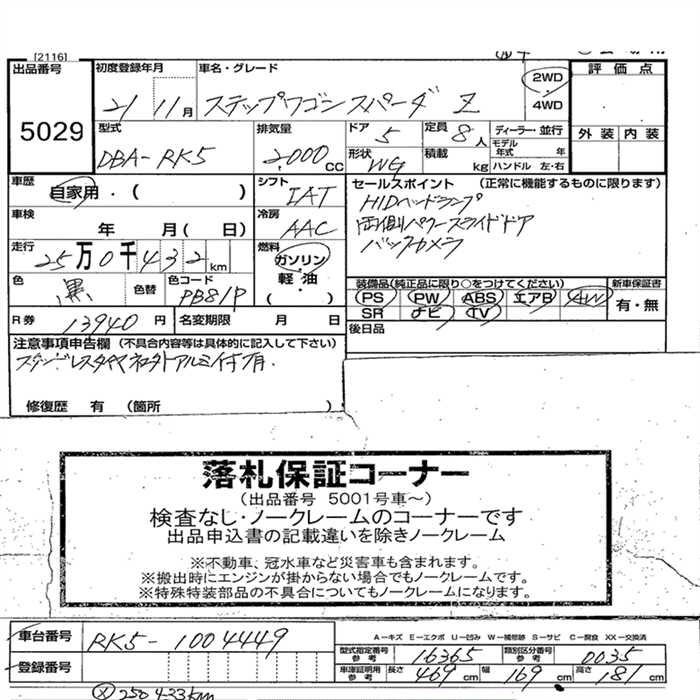 [2116]
出品番号
5029
初度登録年月
21 11月
車名・グレード
ステップワゴン スパーダ Z
2WD
4WD
評価点
外装 内装
型式
DBA-RK5
排気量
2,000 CC
ドア 5
定員 8人
形状 WG
積載 kg
ディーラー・並行
モデル年式 年
ハンドル 左・右
車歴
自家用・( )
シフト
IAT
セールスポイント (正常に機能するものに限ります)
HIDヘッドランプ
両側パワースライドドア
バックカメラ
車検
年 月( 日)
冷房
AAC
走行
25万0千432km
燃料
ガソリン
軽・油
( )
色
黒
色替
色コード
PB81P
装備品(純正品に限り○をつけてください)
PS PW ABS エアB AW
SR ナビ TV
新車保証書
有・無
R券 13940円
名変期限 月 日
後日品
注意事項申告欄 (不具合内容等は具体的に記入して下さい)
修復歴 有 (箇所 )
落札保証コーナー
(出品番号 5001号車~)
検査なし・ノークレームのコーナーです
出品申込書の記載違いを除きノークレーム
※不動車、冠水車など災害車も含まれます。
※搬出時にエンジンが掛からない場合でもノークレームです。
※特殊特装部品の不具合についてもノークレームになります。
車台番号
RK5-1004449
A−キズ E−エクボ U−凹み W−補修跡 S−サビ C−腐食 XX−交換済
型式指定番号 参考 16365
類別区分番号 参考 0035
登録番号
車庫証明用 参考 長さ 469cm 幅 169cm 高さ 181cm
250433km